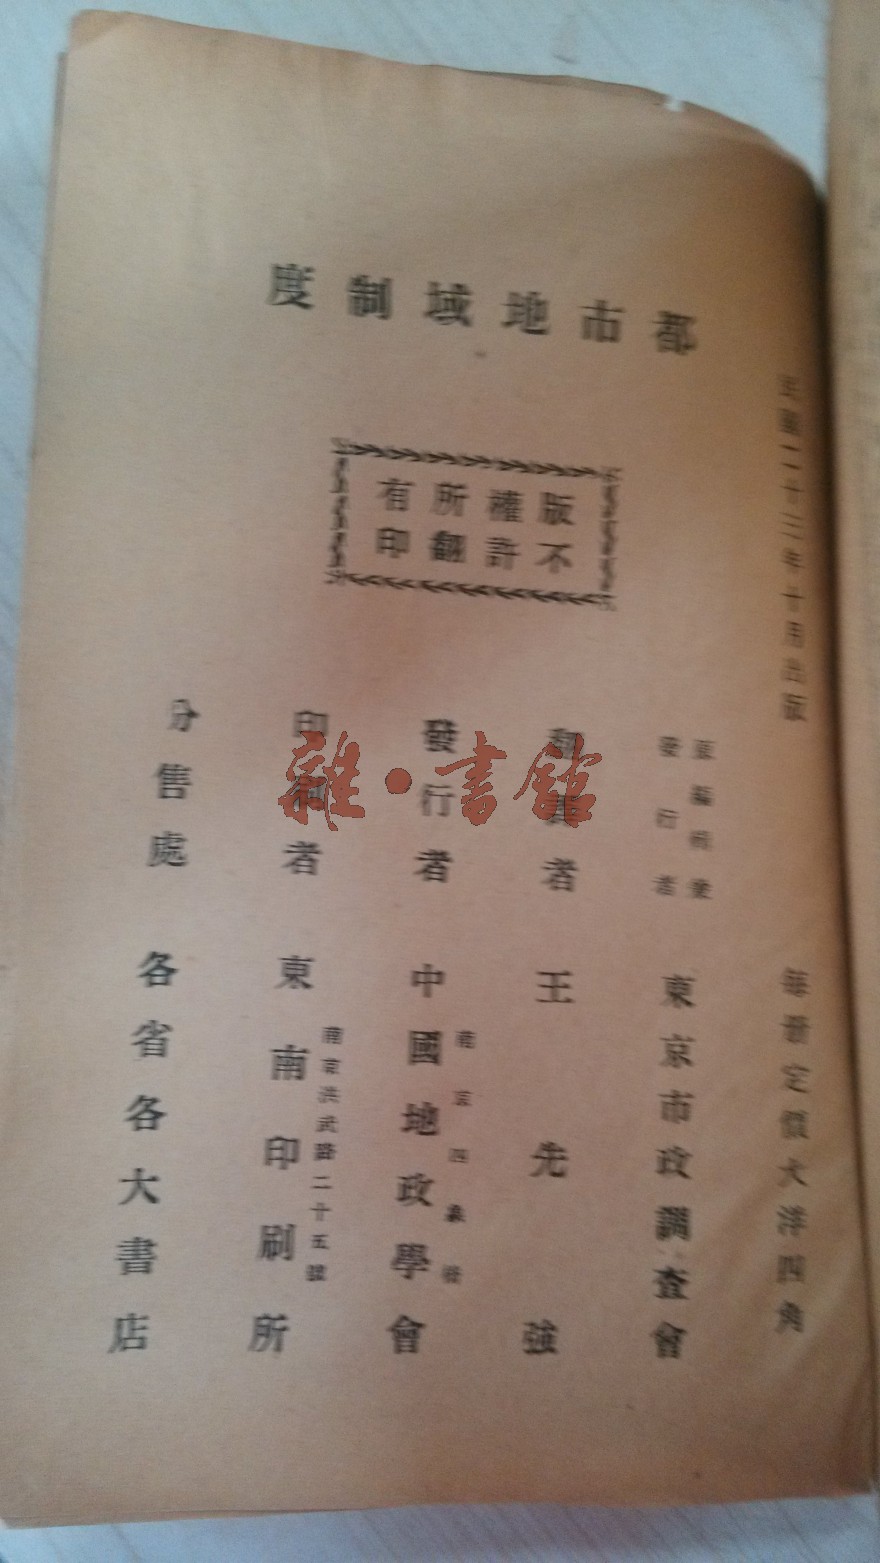 都市地域制度
版權所有
不許翻印
民國二十三年十月出版
每冊定價大洋四角
原編輯兼
發行者
東京市政調查會
翻譯者 王先強
發行者 中國地政學會
南京四條巷
印刷者 東南印刷所
南京洪武路二十五號
分售處 各省各大書店
雜·書館